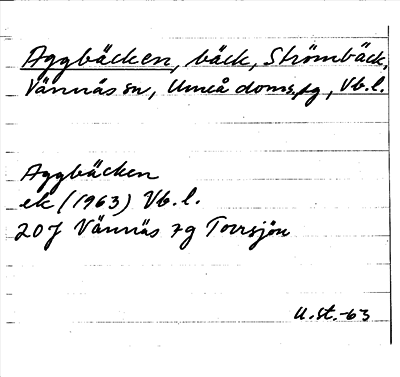 Aggbäcken, bäck, Strömbäck,
Vännäs sn, Umeå doms.tg, Vb.l.
Aggbäcken
ek (1963) Vb.l.
20J Vännäs 7g Torrsjön
U.st.-63